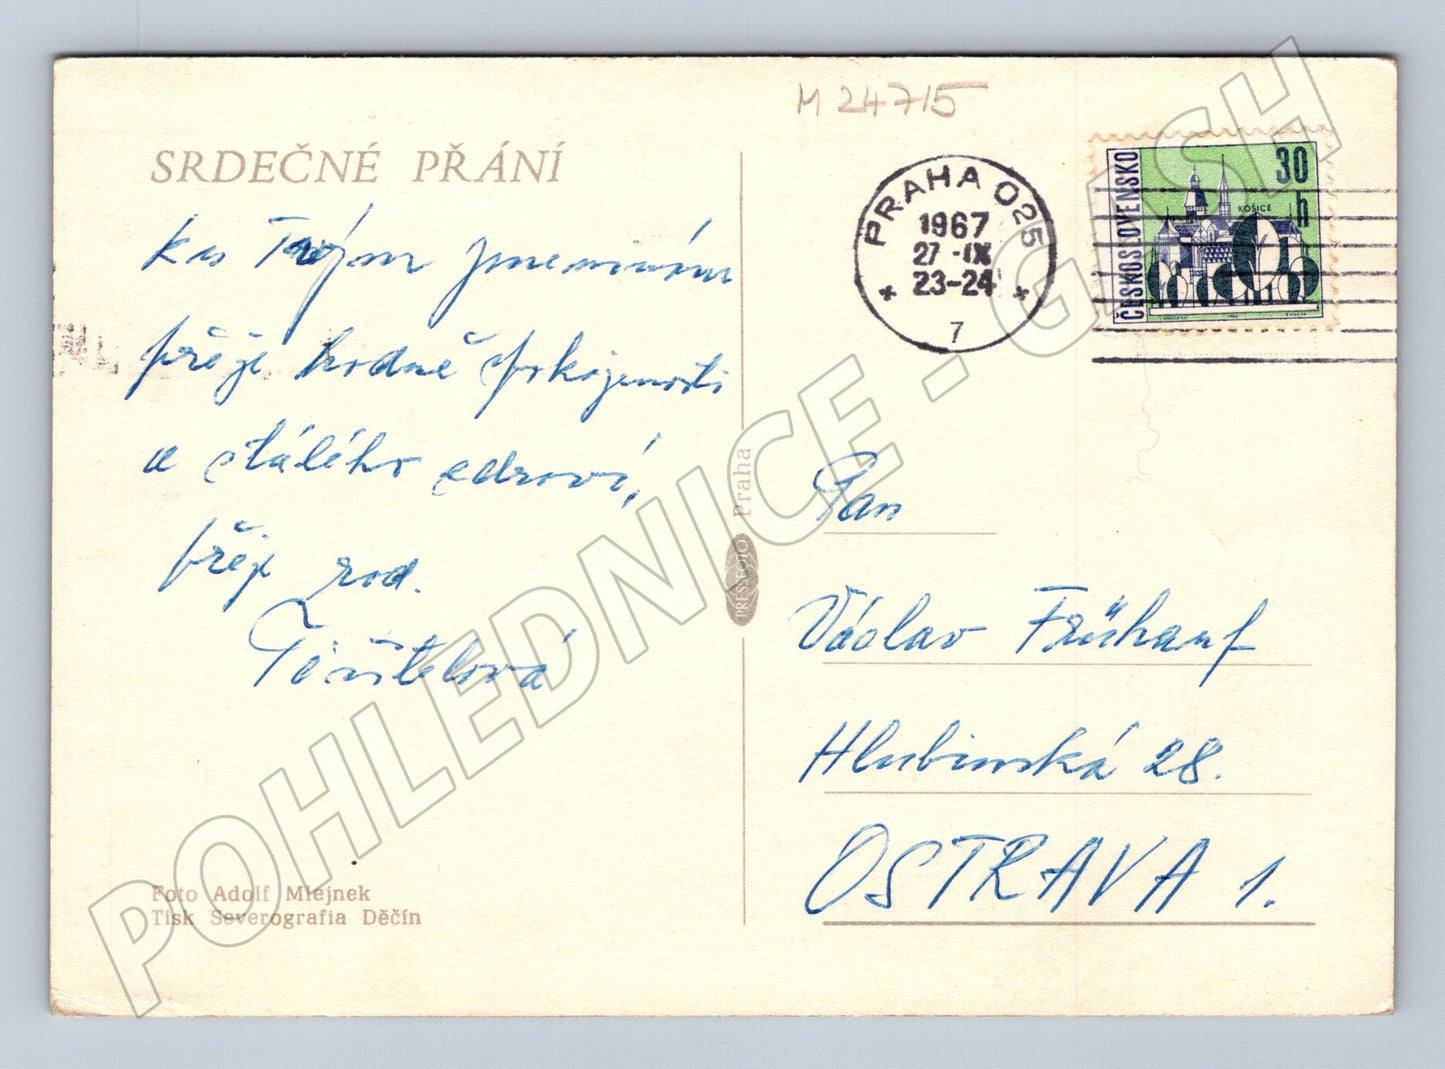 M 24715
SRDEČNÉ PŘÁNÍ
k Tvým jmeninám
přeje hodně spokojenosti
a stálého zdraví,
přeje rod.
PRAHA 025
1967
27.-IX
23-24
7
ČESKOSLOVENSKO
30
h
KOŠICE
Praha
PRESSFOTO
Pan
Václav Frühauf
Hlubinská 28.
OSTRAVA 1.
Foto Adolf Mlejnek
Tisk Severografia Děčín
POHLEDNICE - GASH